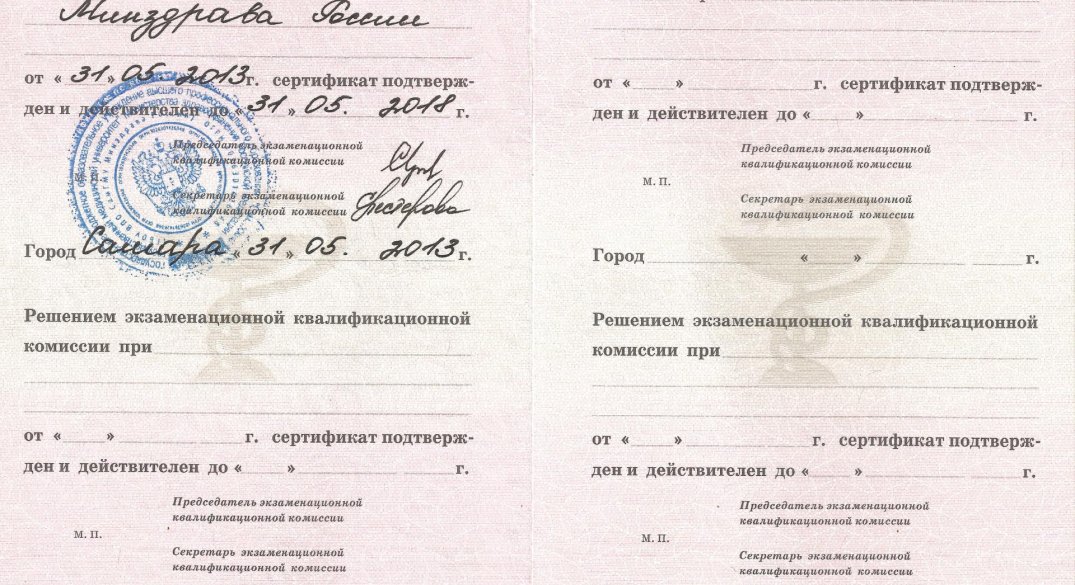 Минздрава России
от «31» 05. 2013 г. сертификат подтверж-
ден и действителен до «31» 05. 2018 г.
Председатель экзаменационной
квалификационной комиссии
М. П.
Секретарь экзаменационной
квалификационной комиссии Нестерова
Город Самара «31» 05. 2013 г.
Решением экзаменационной квалификационной
комиссии при
от « » г. сертификат подтверж-
ден и действителен до « » г.
Председатель экзаменационной
квалификационной комиссии
М. П.
Секретарь экзаменационной
квалификационной комиссии
от « » г. сертификат подтверж-
ден и действителен до « » г.
Председатель экзаменационной
квалификационной комиссии
М. П.
Секретарь экзаменационной
квалификационной комиссии
Город « » г.
Решением экзаменационной квалификационной
комиссии при
от « » г. сертификат подтверж-
ден и действителен до « » г.
Председатель экзаменационной
квалификационной комиссии
М. П.
Секретарь экзаменационной
квалификационной комиссии